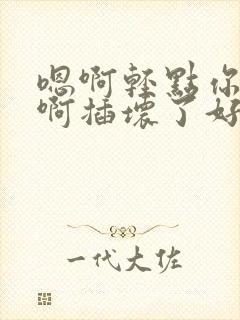 嗯啊轻點你
啊插壞了好
一代大佐